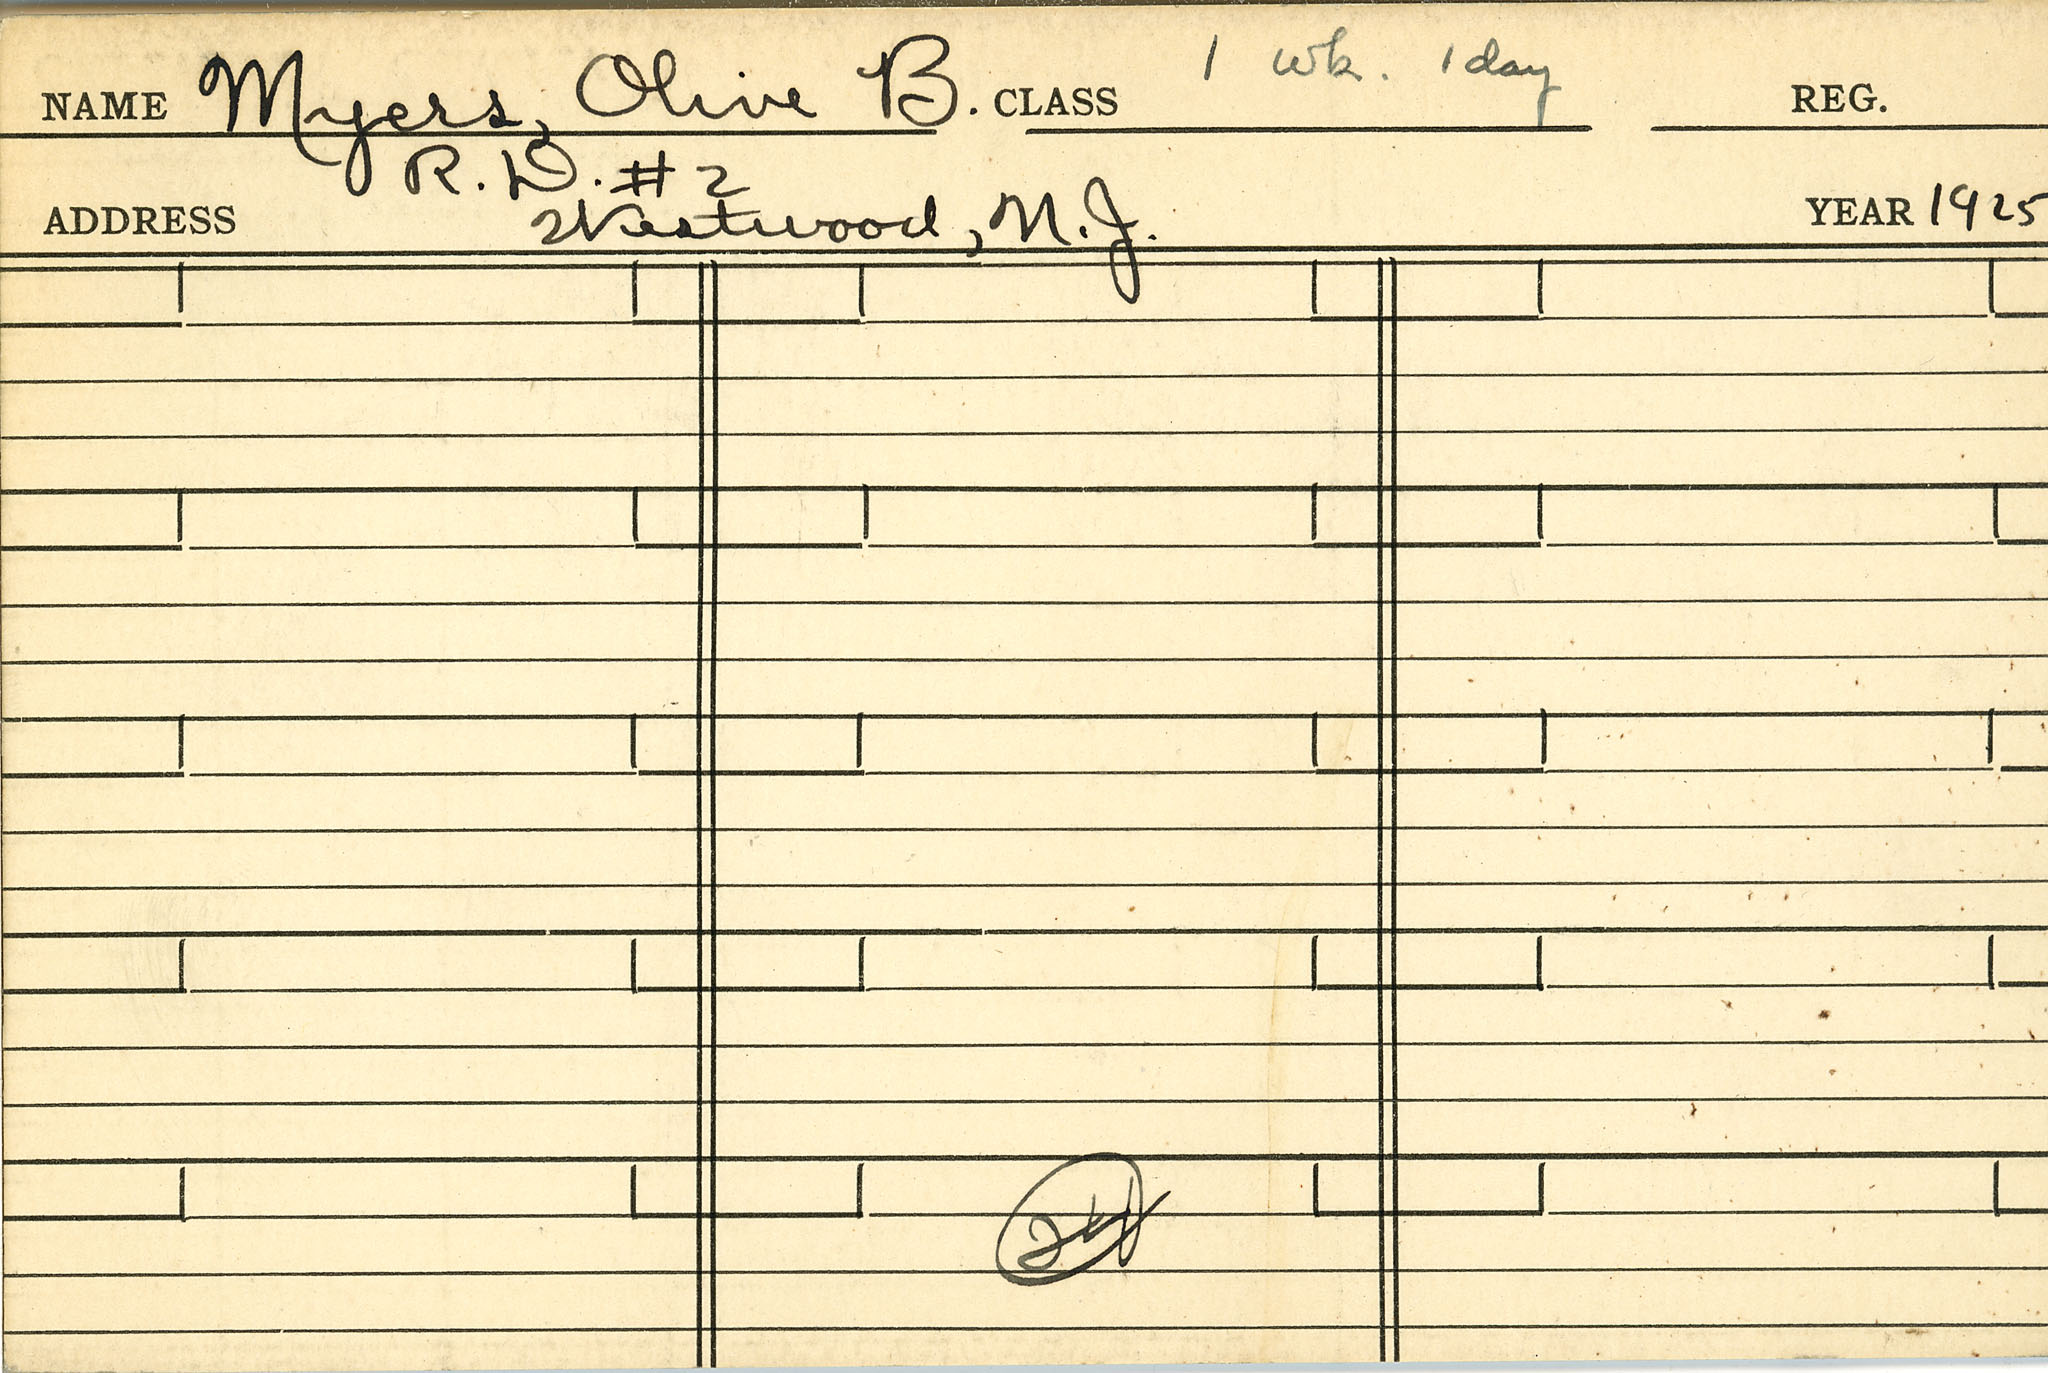 NAME Myers, Olive B. CLASS 1 wk. 1 day REG.
R.D. #2
ADDRESS Westwood, N.J. YEAR 1925
24